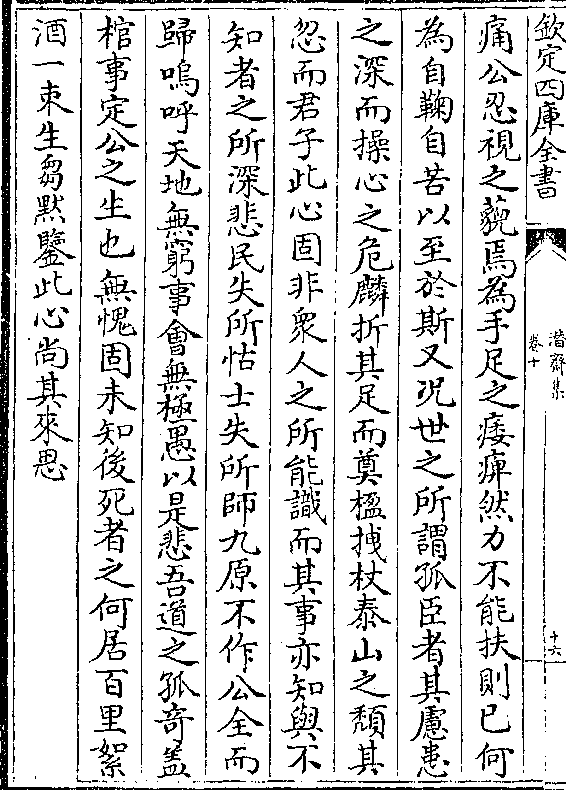 欽定四庫全書
潛齋集
卷十
十六
痛公忍視之藐焉為手足之痿痺然力不能扶則已何
為自鞠自苦以至於斯又況世之所謂孤臣者其慮患
之深而操心之危麟折其足而奠楹拽杖泰山之頹其
忽而君子此心固非衆人之所能識而其事亦知與不
知者之所深悲民失所怙士失所師九原不作公全而
歸嗚呼天地無窮事會無極愚以是悲吾道之孤奇蓋
棺事定公之生也無愧固未知後死者之何居百里絮
酒一束生芻默鑒此心尚其來思